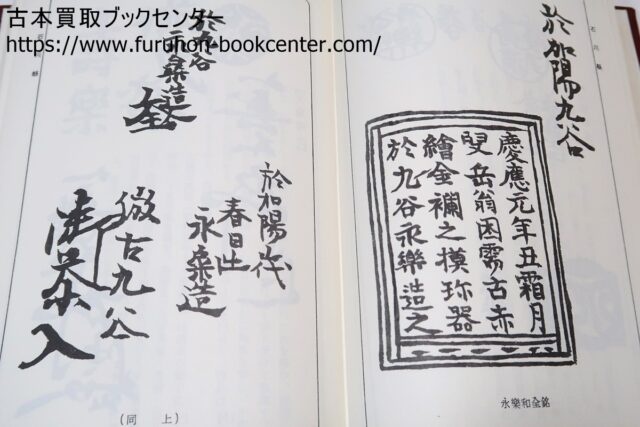 古本買取ブックセンター
https://www.furuhon-bookcenter.com/
石川縣
於加陽九谷
慶應元年丑霜月
叟岳翁因需古赤
繪金襴之模珎器
於九谷永樂造之
永樂和全銘
於九谷
永樂造
於加陽山代
春日山
永樂造
倣古九谷
(同 上)